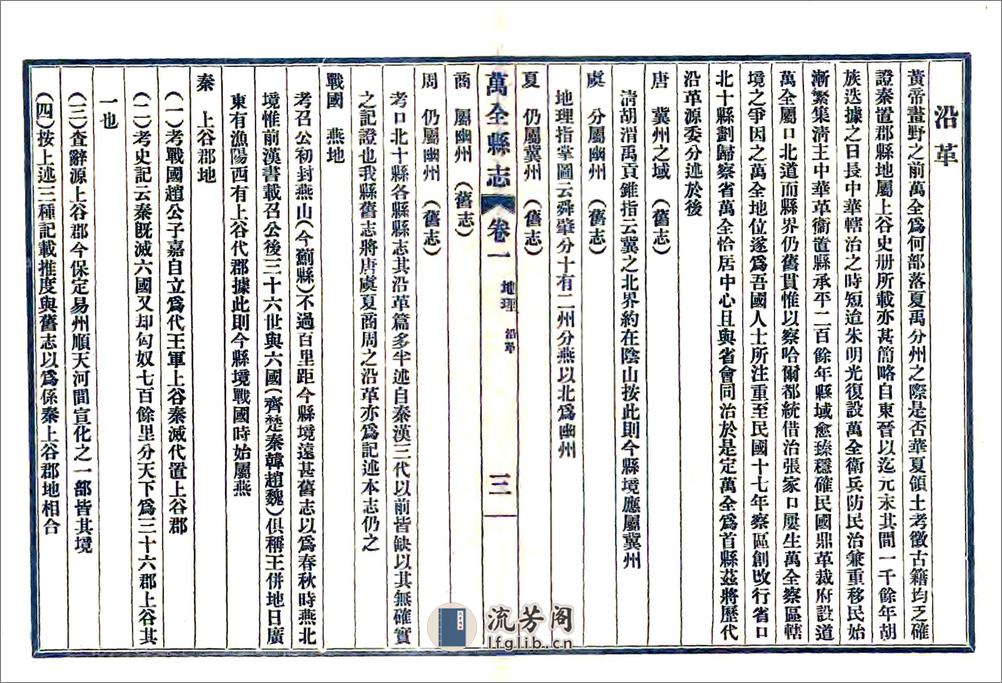 沿革
黃帝畫野之前萬全爲何部落夏禹分州之際是否華夏領土考徵古籍均乏確
證秦置郡縣地屬上谷史册所載亦甚簡略自東晉以迄元末其間一千餘年胡
族迭據之日長中華轄治之時短迨朱明光復設萬全衛兵防民治兼重移民始
漸繁集淸主中華革衞置縣承平二百餘年縣域愈臻穩確民國鼎革裁府設道
萬全屬口北道而縣界仍舊貫惟以察哈爾都統借治張家口屢生萬全察區轄
境之爭因之萬全地位遂爲吾國人士所注重至民國十七年察區創改行省口
北十縣劃歸察省萬全恰居中心且與省會同治於是定萬全爲首縣茲將歷代
沿革源委分述於後
唐 冀州之域 (舊志)
淸胡渭禹貢錐指云冀之北界約在陰山按此則今縣境應屬冀州
虞 分屬幽州 (舊志)
地理指掌圖云舜肇分十有二州分燕以北爲幽州
夏 仍屬冀州 (舊志)
萬全縣志 卷一 地理 沿革 三
商 屬幽州 (舊志)
周 仍屬幽州 (舊志)
考口北十縣各縣縣志其沿革篇多半述自秦漢三代以前皆缺以其無確實
之記證也我縣舊志將唐虞夏商周之沿革亦爲記述本志仍之
戰國 燕地
考召公初封燕山(今薊縣)不過百里距今縣境遠甚舊志以爲春秋時燕北
境惟前漢書載召公後三十六世與六國(齊楚秦韓趙魏)俱稱王併地日廣
東有漁陽西有上谷代郡據此則今縣境戰國時始屬燕
秦 上谷郡地
(一)考戰國趙公子嘉自立爲代王軍上谷秦滅代置上谷郡
(二)考史記云秦旣滅六國又却匈奴七百餘里分天下爲三十六郡上谷其
一也
(三)查辭源上谷郡今保定易州順天河間宣化之一部皆其境
(四)按上述三種記載推度與舊志以爲係秦上谷郡地相合
流芳阁
lfglib.cn